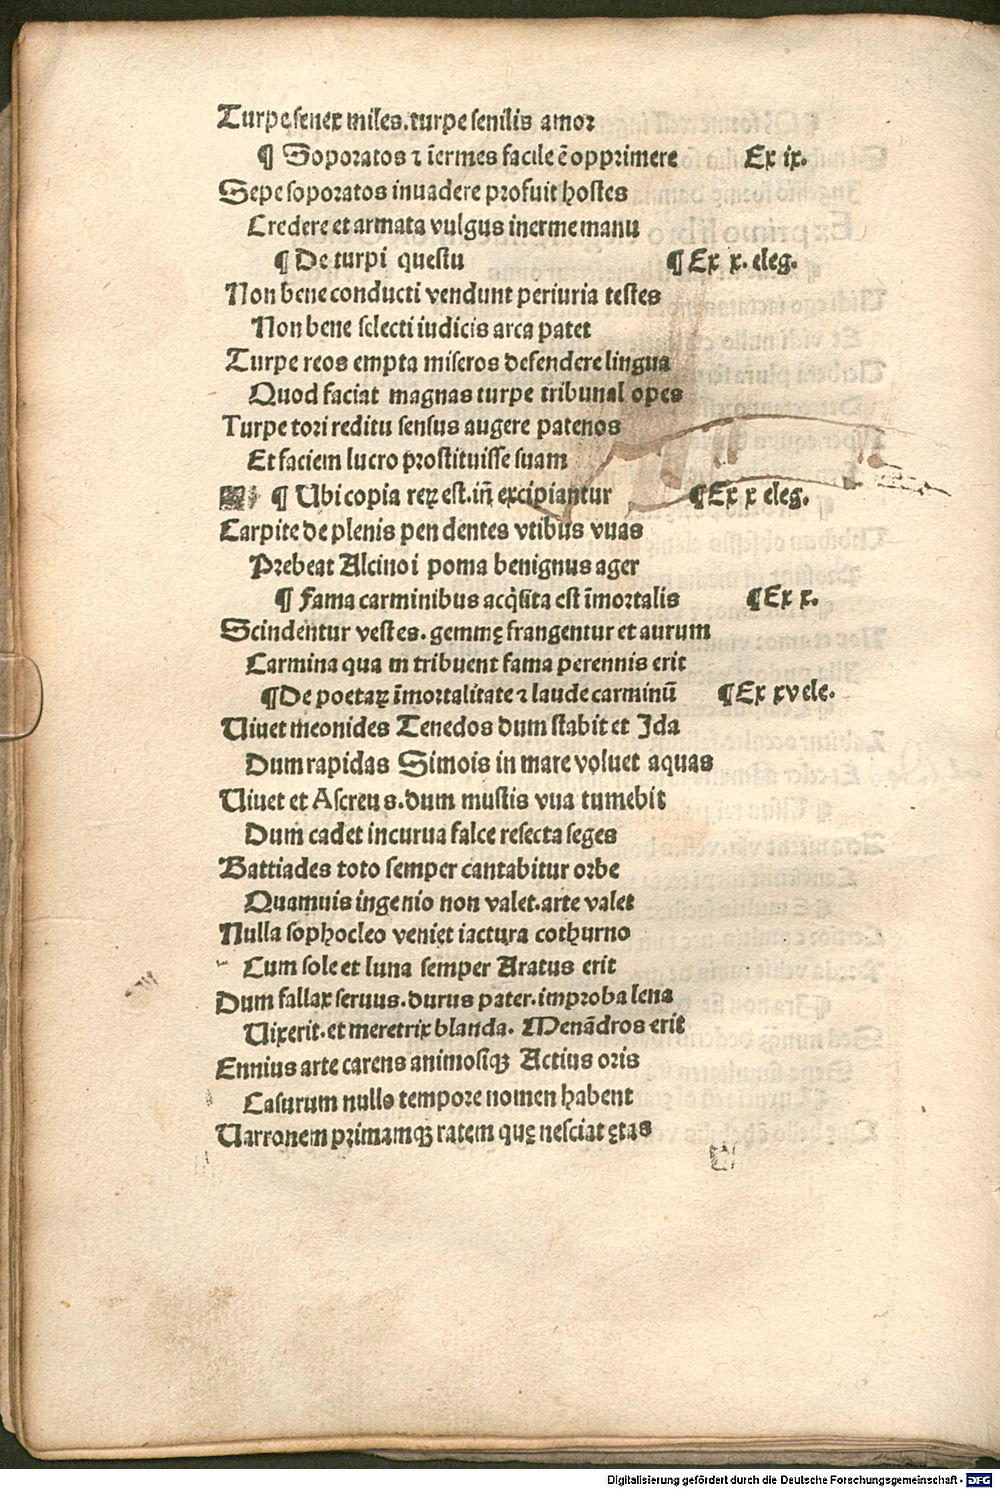 Turpe senex miles.turpe senilis amor
¶ Soporatos ⁊ īermes facile ē opprimere Ex ix.
Sepe soporatos inuadere profuit hostes
Credere et armata vulgus inerme manu
¶ De turpi questu ¶ Ex x. eleg.
Non bene conducti vendunt periuria testes
Non bene selecti iudicis arca patet
Turpe reos empta miseros defendere lingua
Quod faciat magnas turpe tribunal opes
Turpe tori reditu sensus augere patenos
Et faciem lucro prostituisse suam
¶ Ubi copia reꝝ est.in̄ excipiantur ¶Ex x eleg.
Carpite de plenis pen dentes vtibus vuas
Prebeat Alcinoi poma benignus ager
¶ Fama carminibus acq̄sita est īmortalis ¶Ex x.
Scindentur vestes.gemmę frangentur et aurum
Carmina qua m tribuent fama perennis erit
¶De poetaꝝ īmortalitate ⁊ laude carminū ¶Ex xv ele.
Uiuet meonides Tenedos dum stabit et Ida
Dum rapidas Simois in mare voluet aquas
Uiuet et Ascreus.dum mustis vua tumebit
Dum cadet incurua falce resecta seges
Battiades toto semper cantabitur orbe
Quamuis ingenio non valet.arte valet
Nulla sophocleo veniet iactura cothurno
Cum sole et luna semper Aratus erit
Dum fallax seruus.durus pater.improba lena
Uixerit.et meretrix blanda. Menādros erit
Ennius arte carens animosiqꝫ Actius oris
Casurum nullo tempore nomen habent
Uarronem primamqꝫ ratem quę nesciat ętas
Digitalisierung gefördert durch die Deutsche Forschungsgemeinschaft - DFG